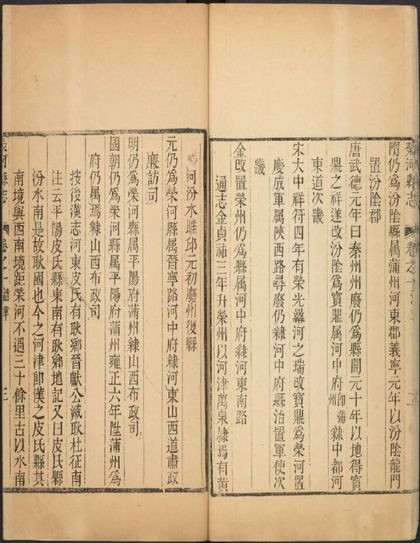 隋仍為汾陰縣屬蒲州河東郡義寧元年以汾陰龍門
置汾陰郡
唐武德元年曰泰州州廢仍為縣開元十年以地得寶
鼎之祥遂改汾陰為寶鼎屬河中府即蒲州隸中都河
東道次畿
宋大中祥符四年有榮光冪河之瑞改寶鼎為榮河置
慶成軍屬陝西路尋廢仍隸河中府縣治置軍使次
畿
金改置榮州仍為縣屬河中府隸河東南路
通志金貞祐三年升榮州以河津萬泉隸焉有黃
河汾水睢邱元初廢州復縣
元仍為榮河縣屬晉寧路河中府隸河東山西道肅政
廉訪司
明仍為榮河縣屬平陽府蒲州隸山西布政司
國朝仍為榮河縣屬平陽府蒲州雍正六年陞蒲州為
府仍屬焉隸山西布政司
按後漢志河東皮氏有耿鄉晉獻公滅耿杜征南
注云平陽皮氏縣東南有耿鄉地記又曰皮氏縣
汾水南是故耿國也今之河津即漢之皮氏縣其
南境與西南境距榮河不過三十餘里古以水南
榮河縣志 卷之一 沿革 三